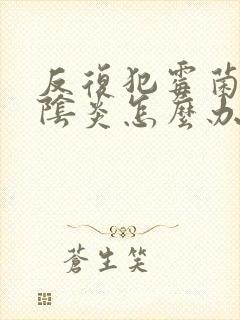 反復犯霉菌
陰炎怎麼办
蒼生笑